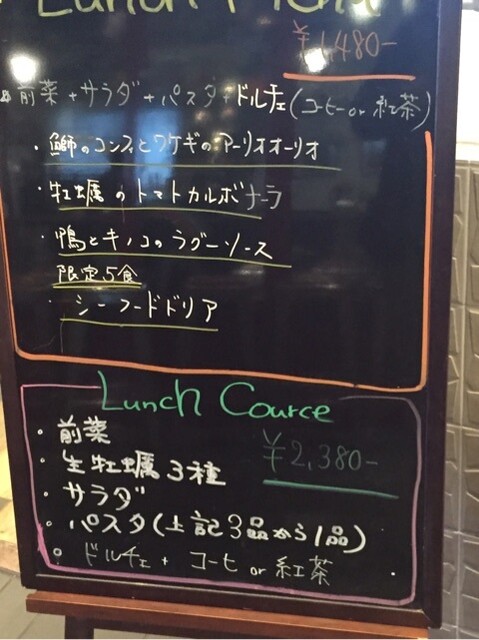 Lunch Menu
¥1,480-
前菜+サラダ+パスタ+ドルチェ(コーヒー or 紅茶)
・鰤のコンフィとワケギのアーリオオーリオ
・牡蠣のトマトカルボナーラ
・鴨とキノコのラグーソース
限定5食
・シーフードドリア
Lunch Cource
・前菜
¥2,380-
・生牡蠣3種
・サラダ
・パスタ(上記3品から1品)
・ドルチェ + コーヒ or 紅茶